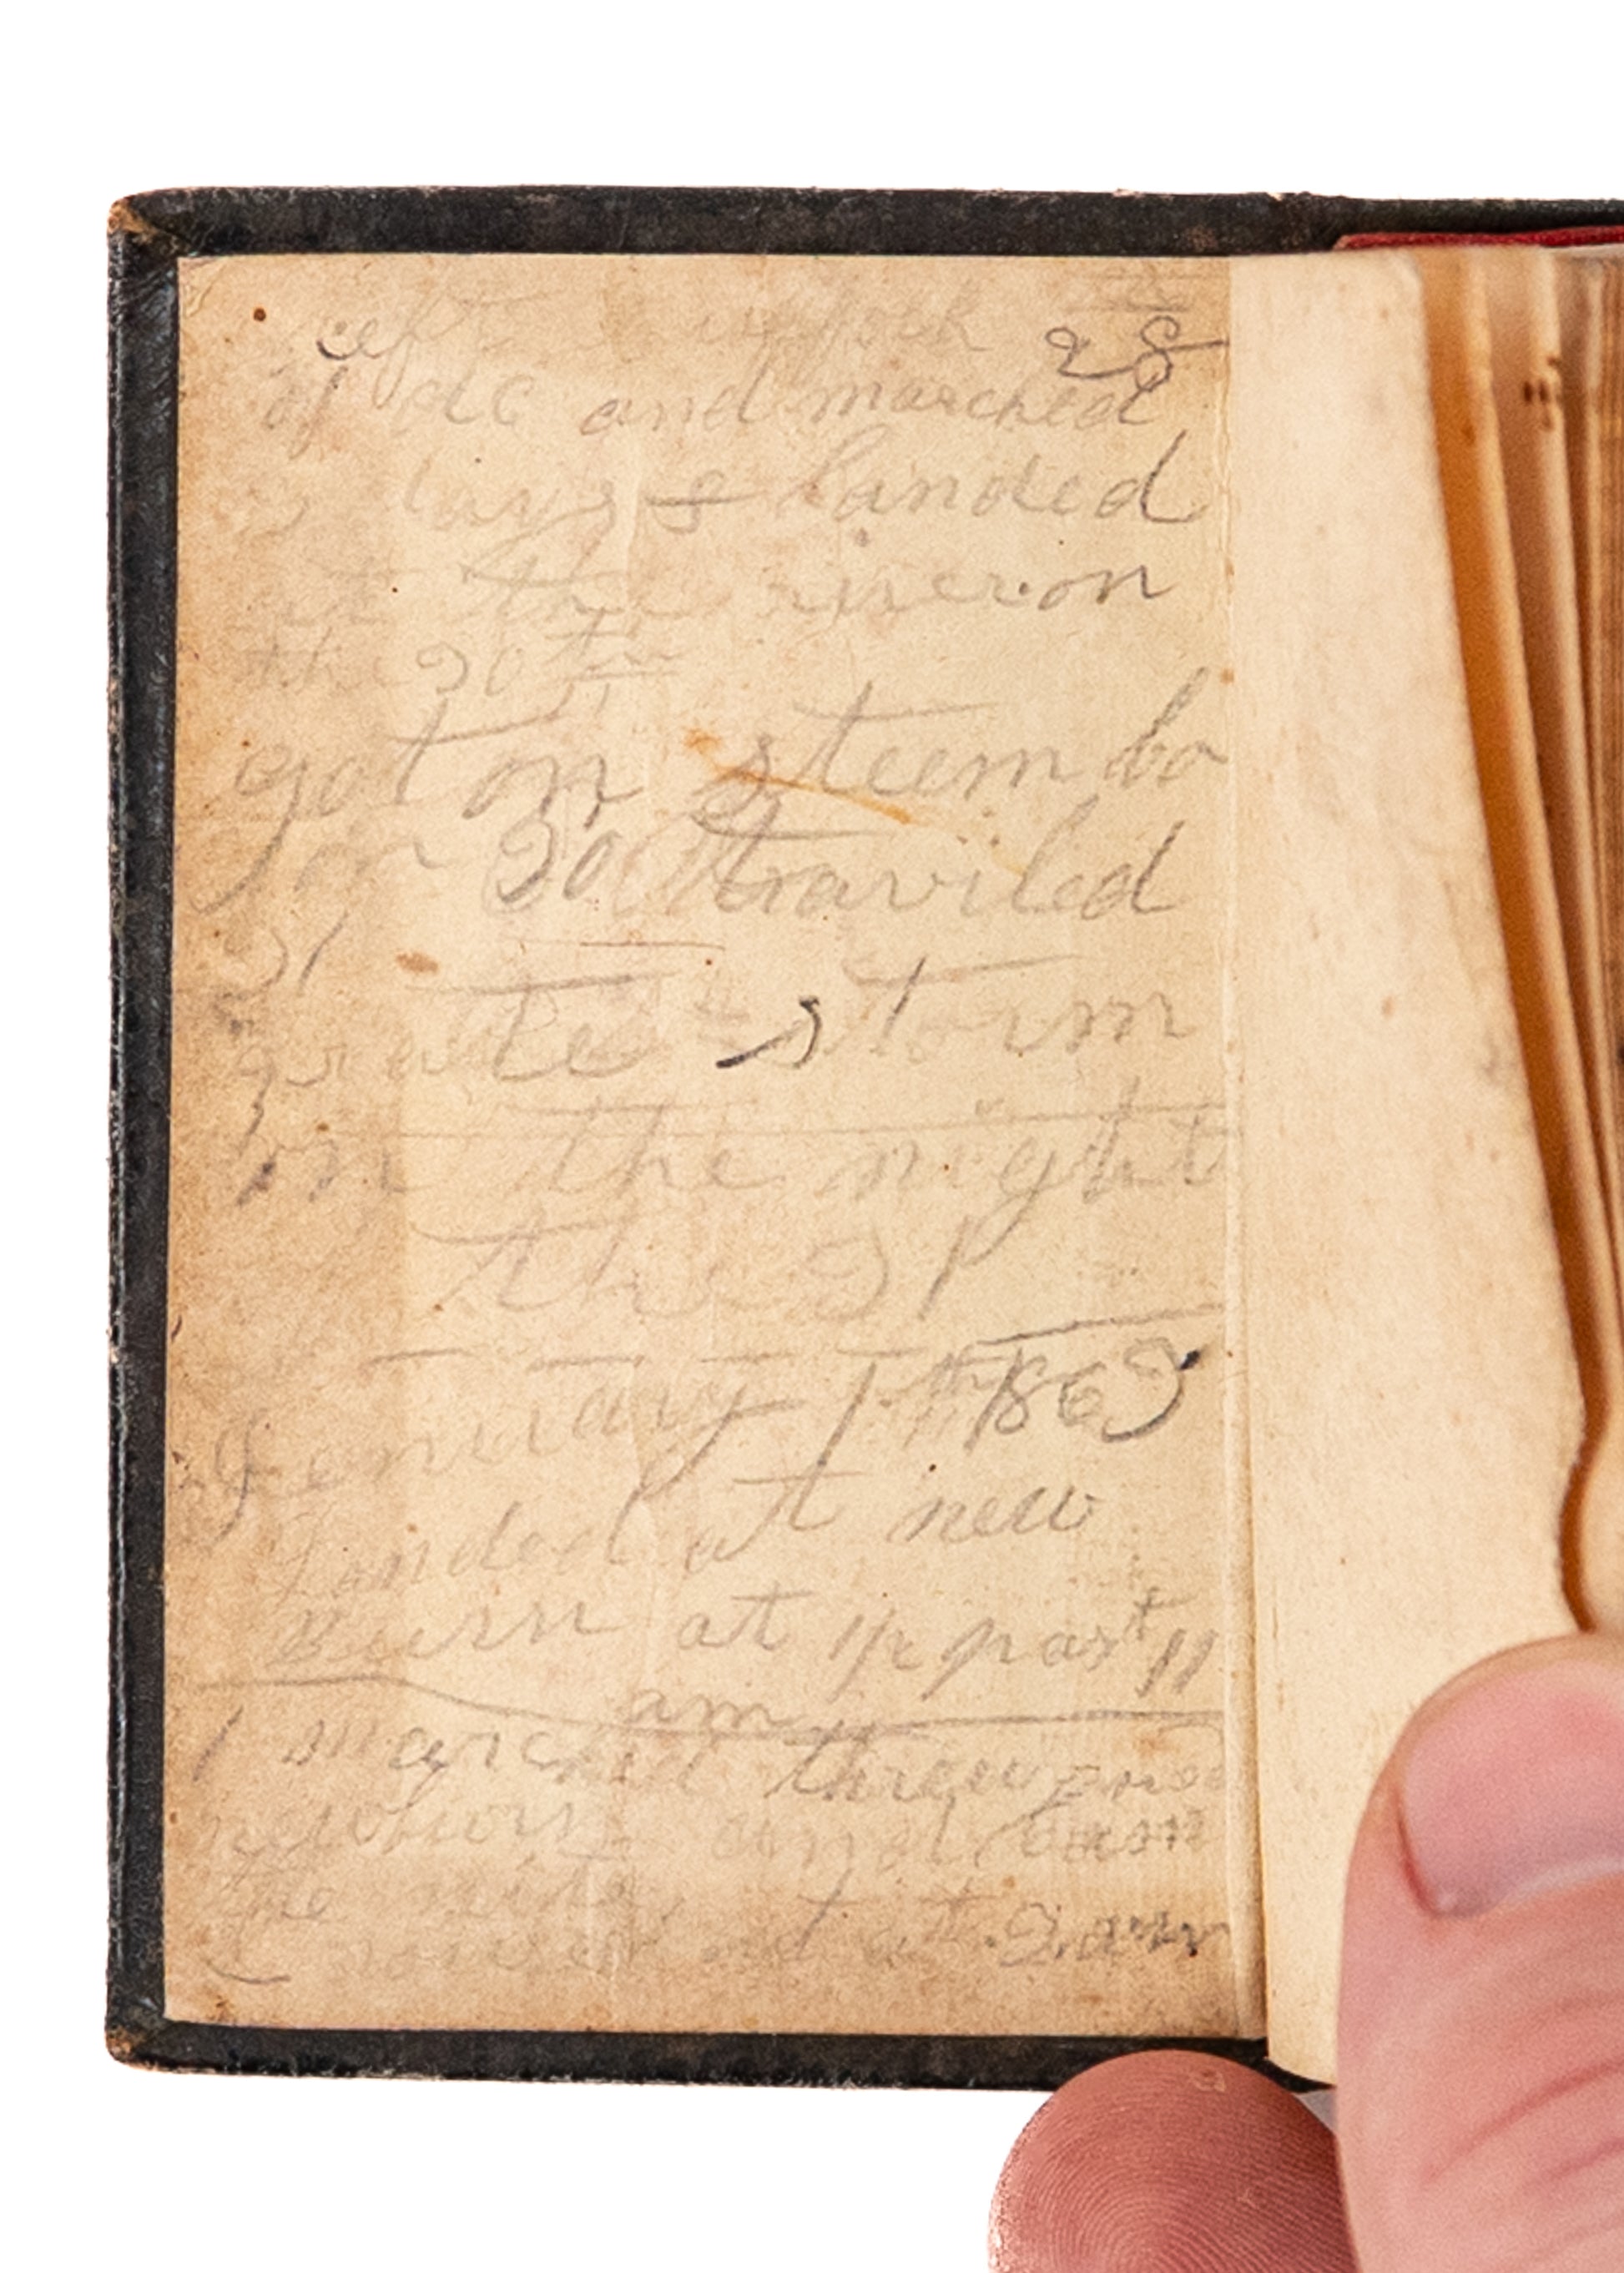 left 28
of dc and marched
days & landed
at the river on
the 30th
got on steem bo
for 30 traviled
31
greate storm
on the night
the 31
January 1th 1863
Landed at new
burn at 1/2 past 11
am
marched threw
newburn and
the
at